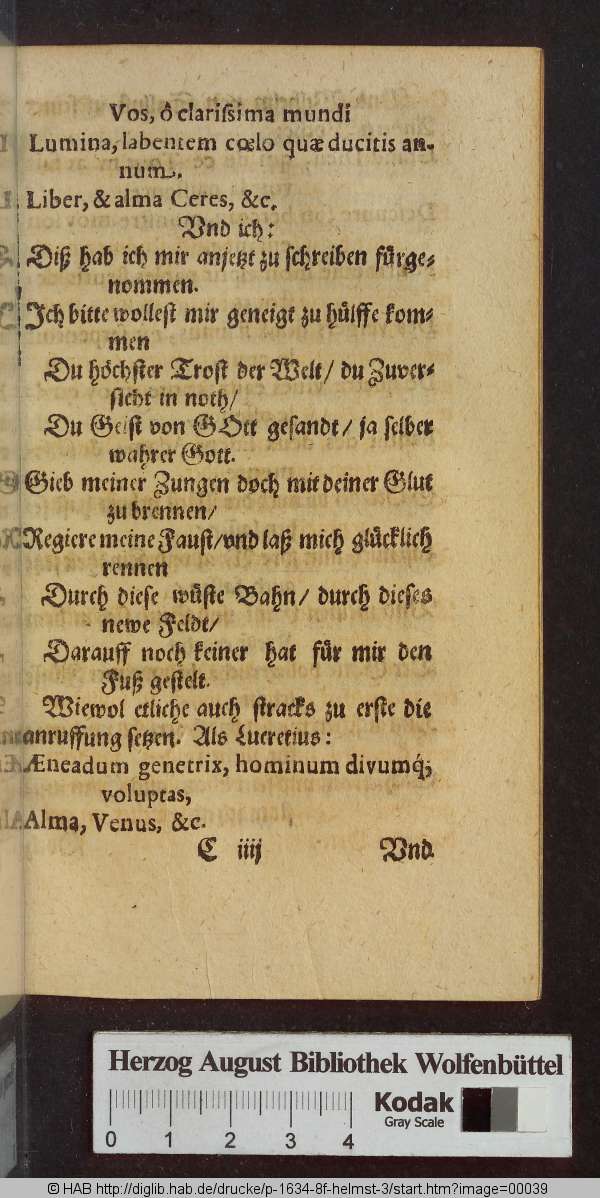 Vos, ô clarissima mundi
Lumina, labentem cœlo quæ ducitis an-
num.
Liber, & alma Ceres, &c.
Vnd ich:
Diß hab ich mir anjetzt zu schreiben fürge-
nommen.
Ich bitte wollest mir geneigt zu hülffe kom-
men
Du höchster Trost der Welt / du Zuver-
sicht in noth /
Du Geist von GOtt gesandt / ja selber
wahrer Gott.
Gieb meiner Zungen doch mit deiner Glut
zu brennen /
Regiere meine Faust / vnd laß mich glücklich
rennen
Durch diese wüste Bahn / durch dieses
newe Feldt /
Darauff noch keiner hat für mir den
Fuß gestelt.
Wiewol etliche auch stracks zu erste die
anruffung setzen. Als Lucretius:
Æneadum genetrix, hominum divumq́;
voluptas,
Alma, Venus, &c.
C iiij Vnd
Herzog August Bibliothek Wolfenbüttel
Kodak
Gray Scale
0 1 2 3 4
© HAB http://diglib.hab.de/drucke/p-1634-8f-helmst-3/start.htm?image=00039